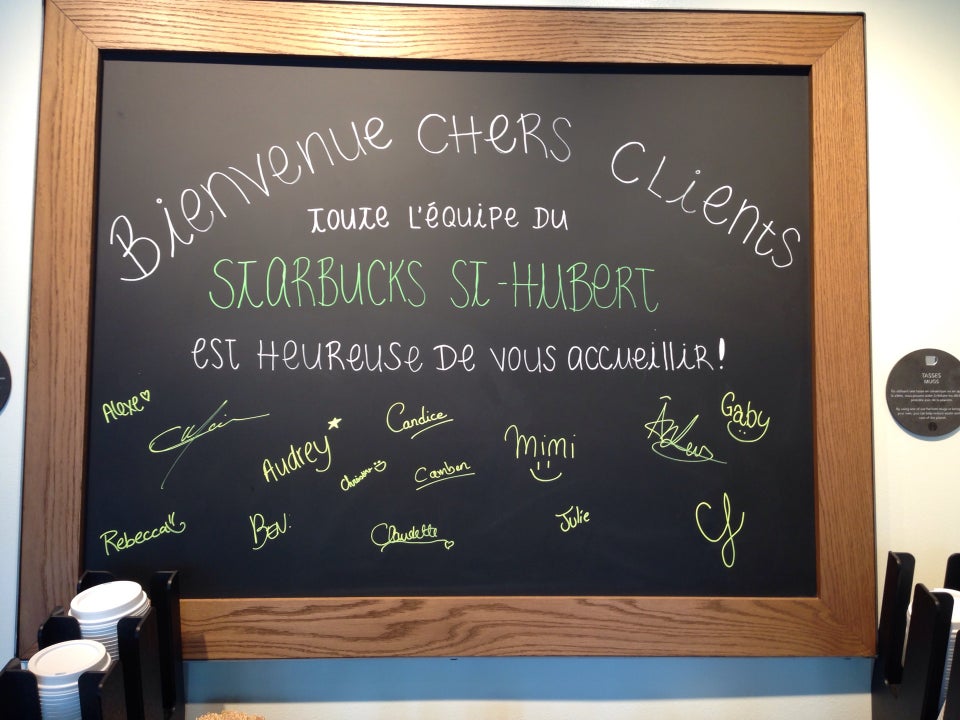 Bienvenue CHERS Clients
TOUTE L'ÉQUIPE DU
STARBUCKS ST-HUBERT
EST HEUREUSE DE VOUS ACCUEILLIR!
Alexe
Candice
Gaby
Audrey
Mimi
Camben
Rebecca
BEN:
Claudette
Julie
TASSES
MUGS